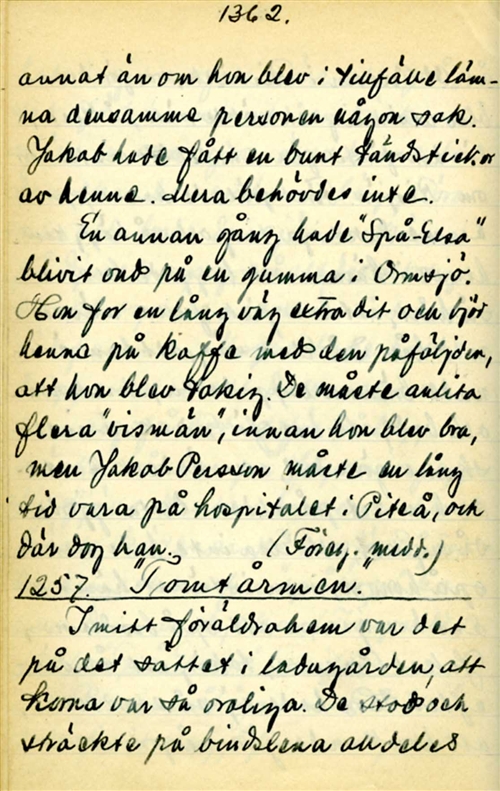 1362.
annat än om hon blev i tillfälle läm-
na densamme personen någon sak.
Jakob hade fått en bunt tändstickor
av henne. Mera behövdes inte.
En annan gång hade "Spå-Elsa"
blivit ond på en gumma i Ormsjö.
Hon for en lång väg extra dit och bjöd
henne på kaffe med den påföljden,
att hon blev tokig. De måste anlita
flera "vismän", innan hon blev bra,
men Jakob Persson måste en lång
tid vara på hospitalet i Piteå, och
där dog han. (Föreg. medd.)
1257. "Tomtårmen."
I mitt föräldrahem var det
på det sättet i ladugården, att
korna var så oroliga. De stod och
sträckte på bindslena alldeles